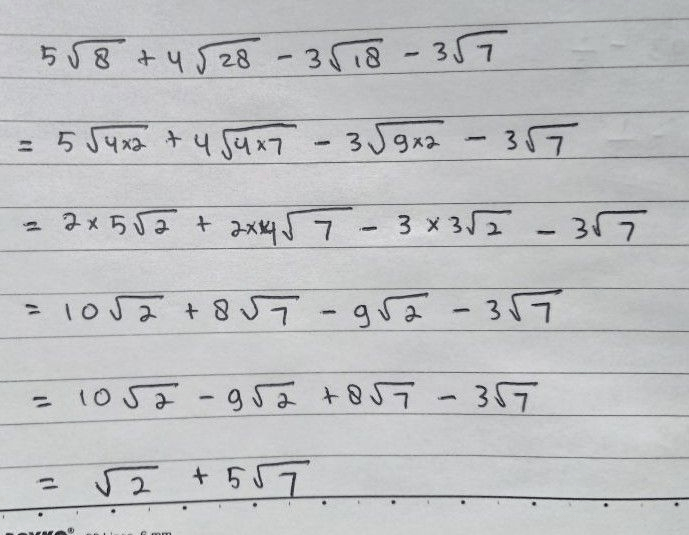 5√8 + 4√28 - 3√18 - 3√7
= 5√4×2 + 4√4×7 - 3√9×2 - 3√7
= 2×5√2 + 2×4√7 - 3×3√2 - 3√7
= 10√2 + 8√7 - 9√2 - 3√7
= 10√2 - 9√2 + 8√7 - 3√7
= √2 + 5√7